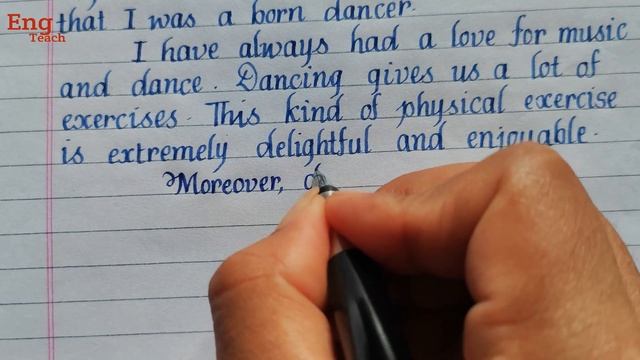 Eng
Teach
that I was a born dancer.
I have always had a love for music
and dance. Dancing gives us a lot of
exercises. This kind of physical exercise
is extremely delightful and enjoyable.
Moreover,